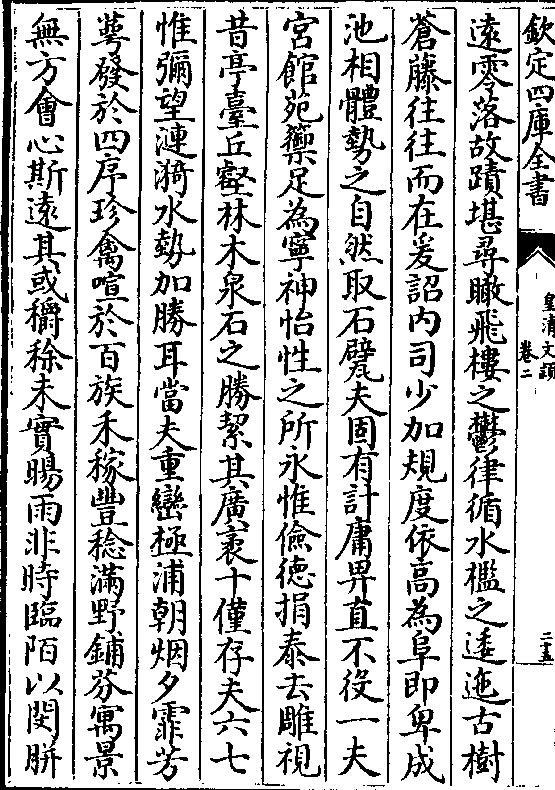 欽定四庫全書
皇清文穎
卷二
二十五
遠零落故蹟堪尋瞰飛樓之鬱律循水檻之逶迤古樹
蒼藤往往而在爰詔內司少加規度依高為阜即卑成
池相體勢之自然取石甓夫固有計庸畀直不役一夫
宮館苑籞足為寧神怡性之所永惟儉德捐泰去雕視
昔亭臺丘壑林木泉石之勝絜其廣袤十僅存夫六七
惟彌望漣漪水勢加勝耳當夫重巒極浦朝烟夕霏芳
萼發於四序珍禽喧於百族禾稼豐稔滿野鋪芬寓景
無方會心斯遠其或穱稌未實暘雨非時臨陌以閔胼